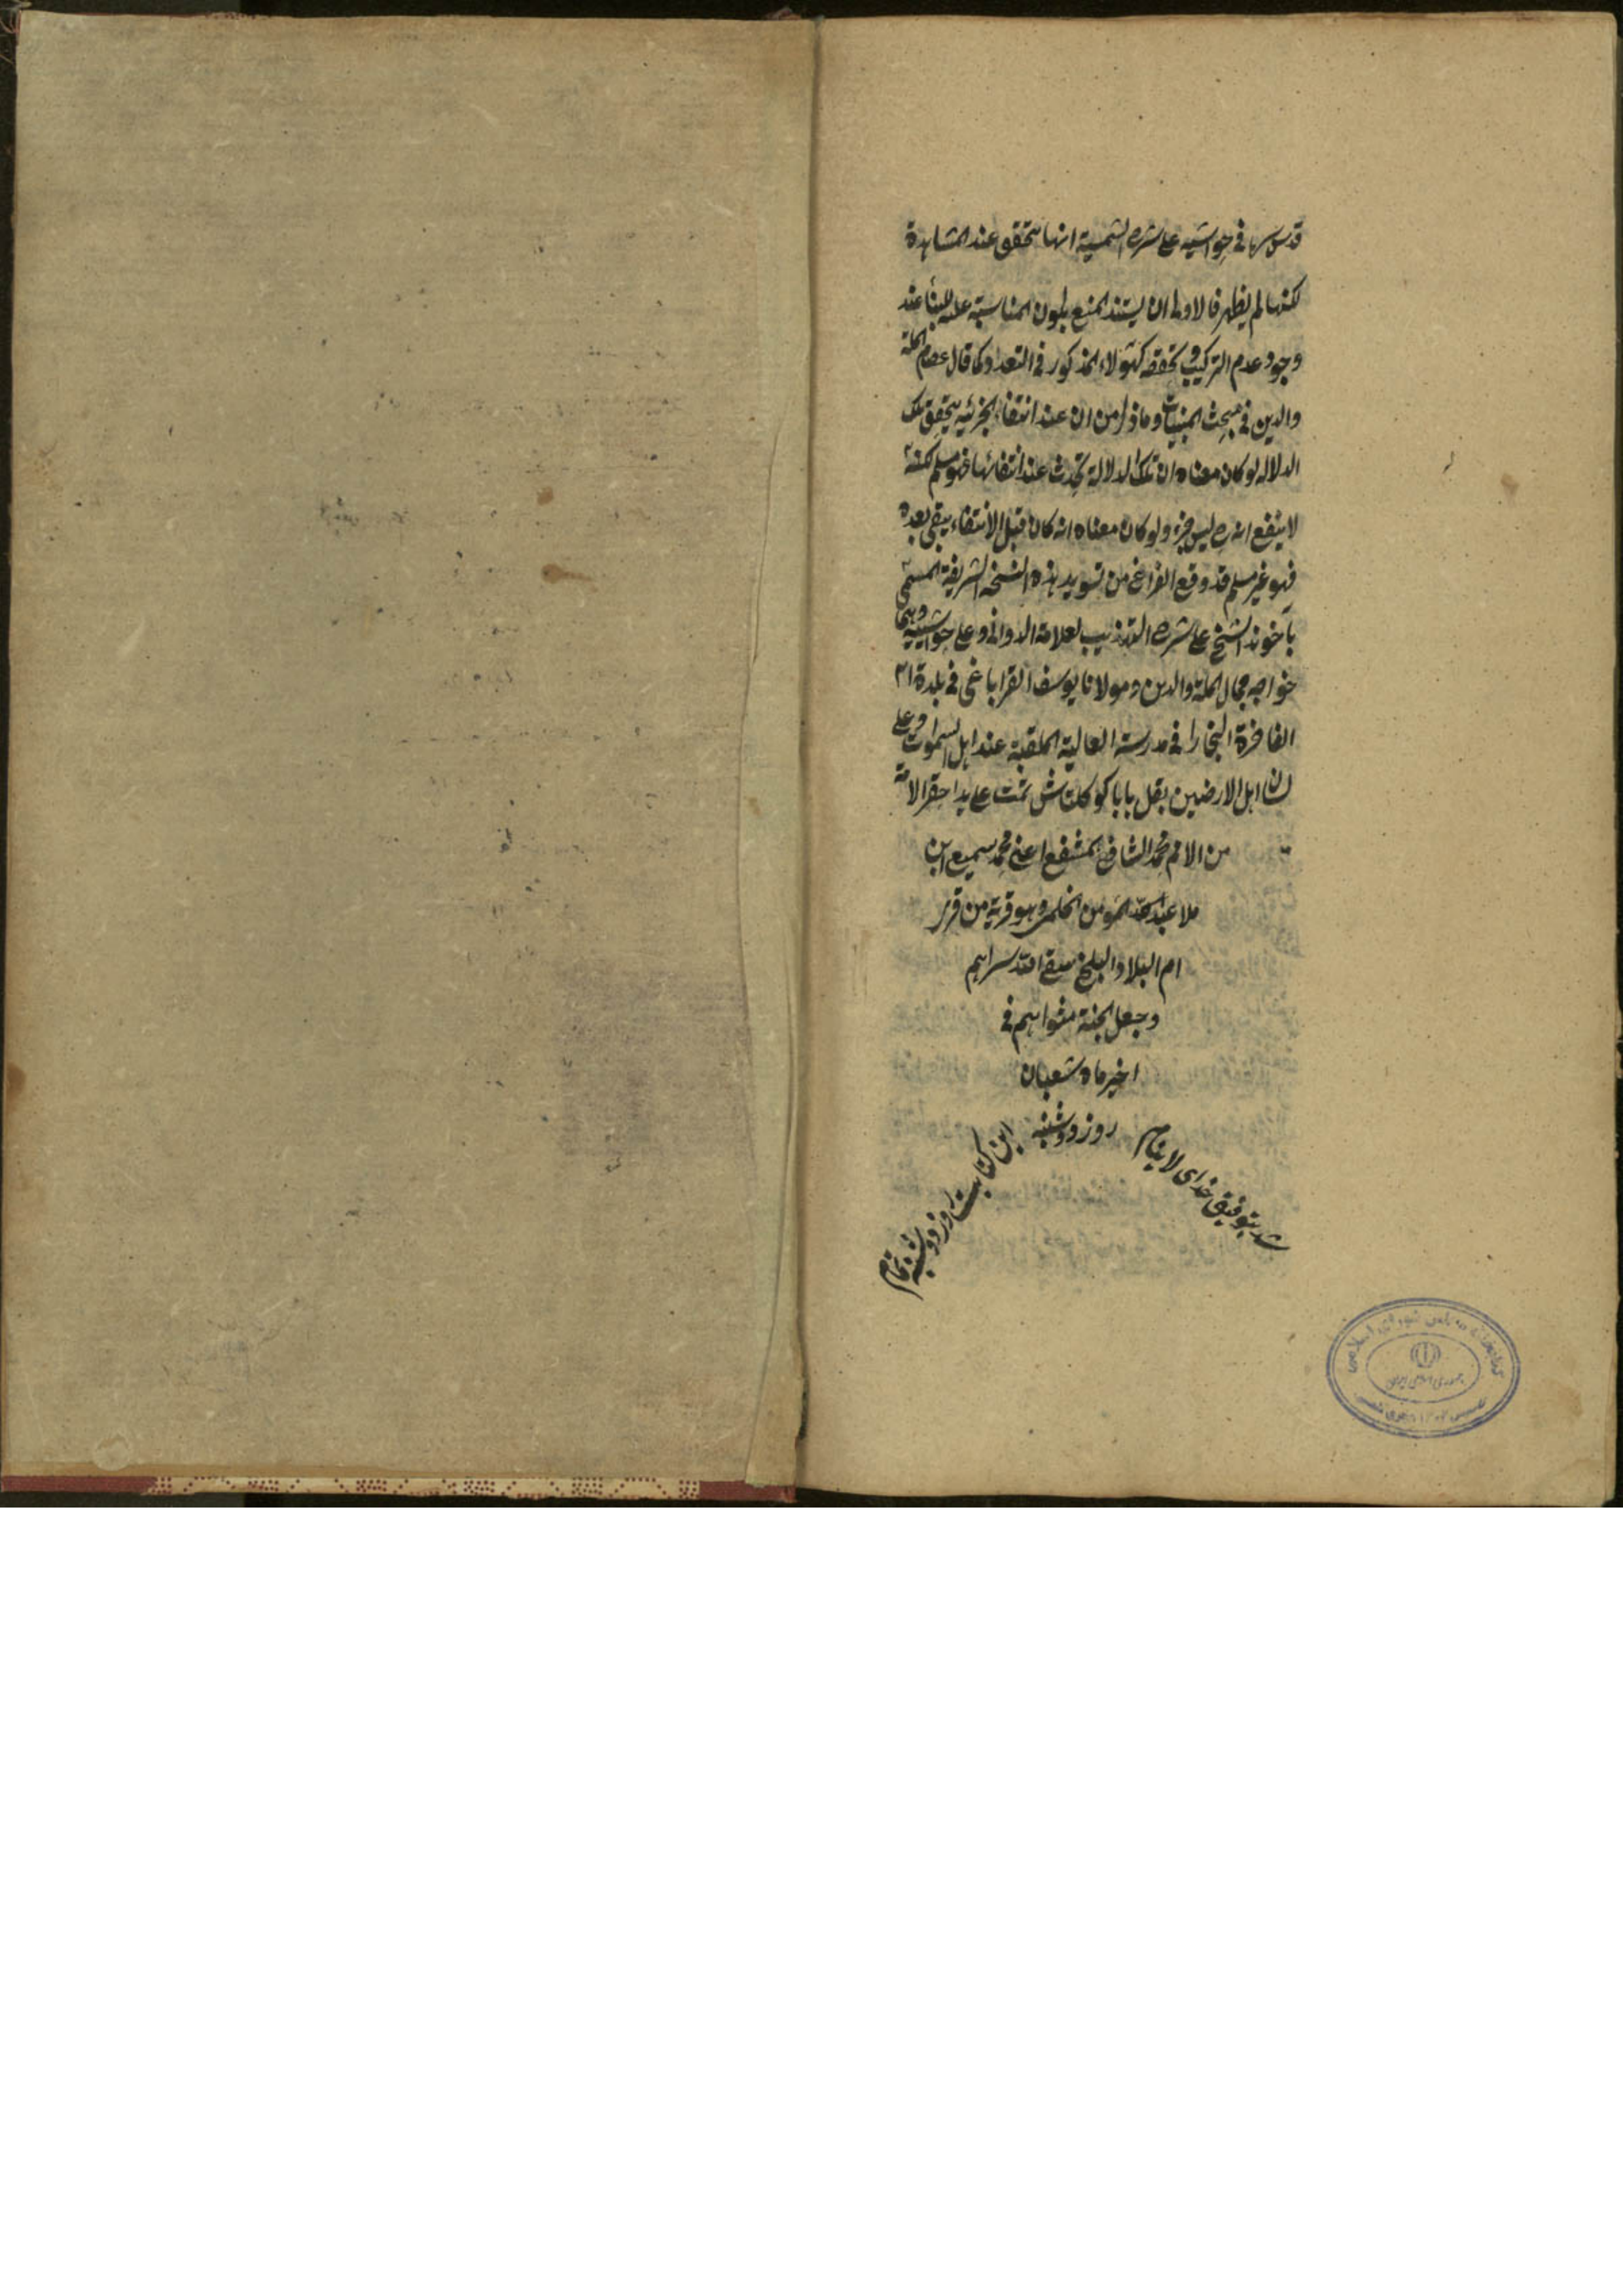 قدس سرها في حواشيه على شرح الشمسية انها تتحقق عند المشاهدة
لكنها لم يظهر فالاولى ان يستند المنع بكون المناسبة علة للبناء عند
وجود عدم التركيب وتحققه كهؤلاء المذكور في التعداد كما قال عصام الملة
والدين في مبحث المبنيات وما ذكر من ان عند انتفاء الجزئية يتحقق تلك
الدلالة لو كان معناه ان تلك الدلالة تحدث عند انتفائها فهو مسلم لكنه
لا ينفع انه ح ليس جزء ولو كان معناه انه كان قبل الانتفاء يبقى بعده
فهو غير مسلم قد وقع الفراغ من تسويد هذه النسخة الشريفة المسمى
بآخوند الشيخ على شرح التهذيب لعلامة الدواني وعلى حواشييه وهما
خواجه جمال الملة والدين ومولانا يوسف القراباغي في بلدة
الفاخرة البخارا في مدرسته العالية الملقبة عند اهل السموات وعلى
لسان اهل الارضين بقل بابا كوكلتاش تمت على يد احقر الامة
من الامم محمد الشافع المشفع اعني محمد سميع ابن
ملا عبد المؤمن الخلمى وهو قرية من قرى
ام البلاد البلخ سقى الله سراهم
وجعل الجنة مثواهم في
اخير ماه شعبان
روز دوشنبه
این کتابت روز دوشنبه تمام
شد بتوفیق خدای لاینام
کتابخانه مجلس شورای اسلامی
جمهوری اسلامی ایران